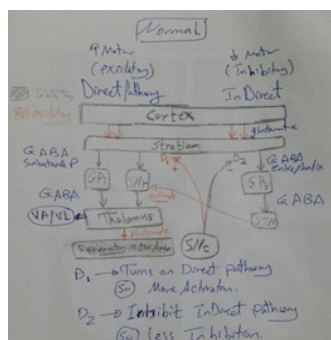 Normal
↑ Motor
(excitatory)
Direct Pathway
↓ Motor
(Inhibitory)
InDirect
Cortex
glutamate
Striatum
D1
D2
GABA
Substance P
GABA
enkephalin
GPi
SNr
GPe
GABA
GABA
VA/VL
Thalamus
STN
glutamate
Supplementary Motor Area
SNc
D1 → Turns on Direct pathway
So More Activation.
D2 → Inhibit InDirect pathway
So Less Inhibition.